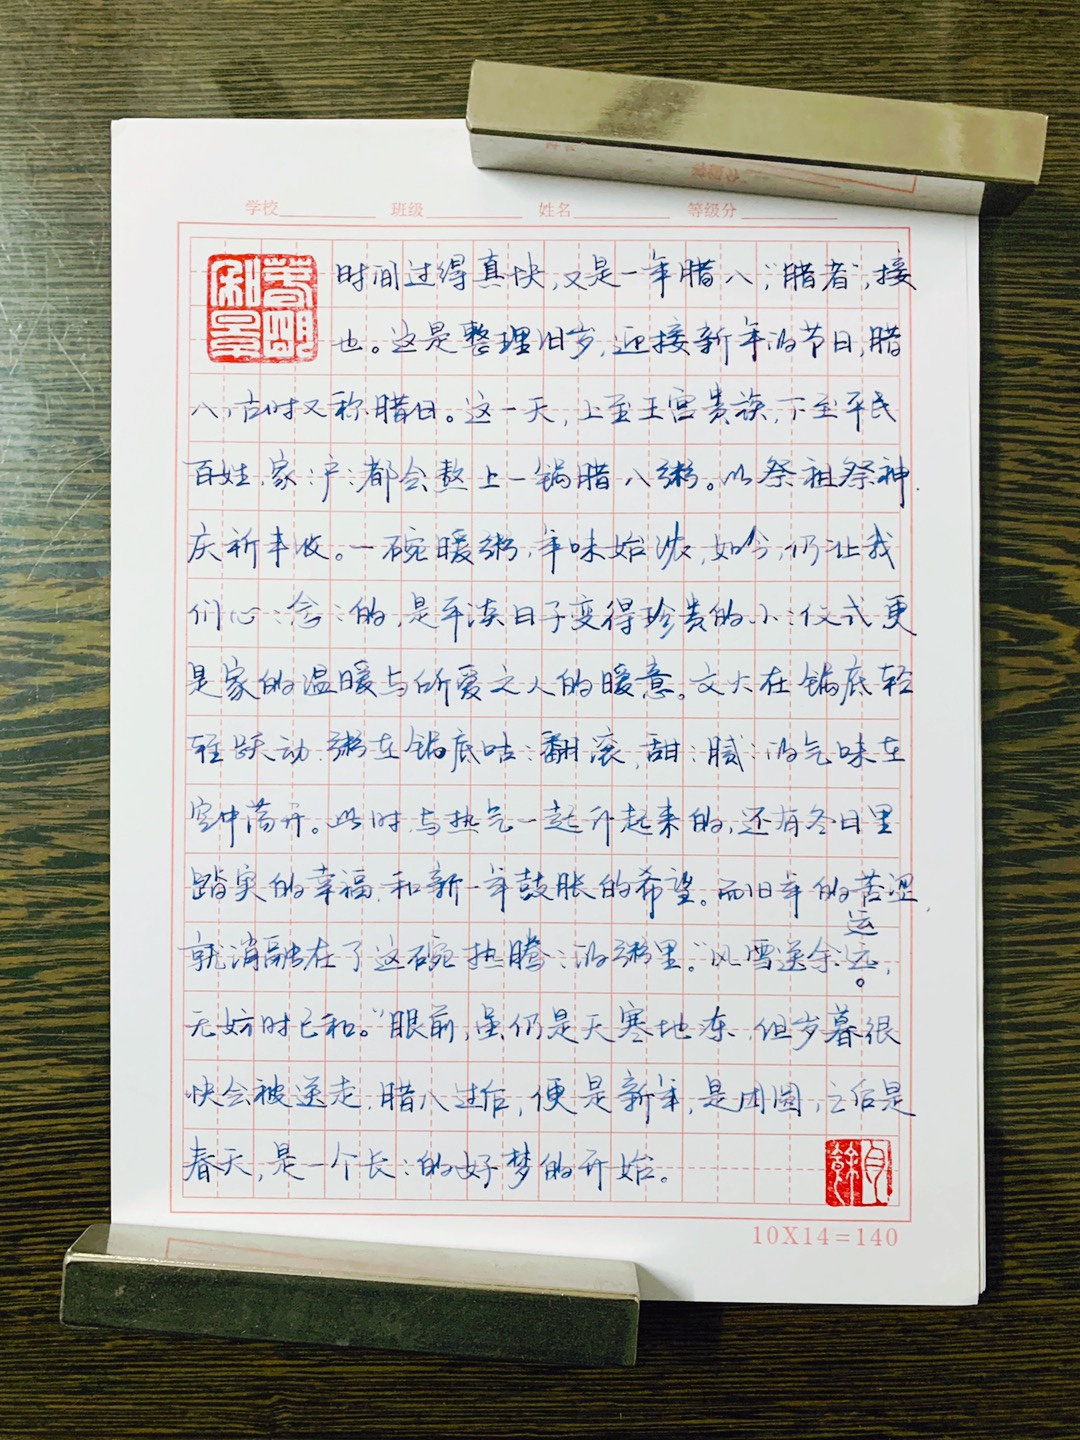 学校 班级 姓名 等级分
时间过得真快,又是一年腊八,“腊者”,接
也。这是整理旧岁,迎接新年的节日,腊
八,古时又称腊日。这一天,上至王宫贵族,下至平民
百姓,家:户:都会熬上一锅腊八粥。以祭祖祭神,
庆祈丰收。一碗暖粥,年味始浓,如今,仍让我
们心:念:的,是平淡日子变得珍贵的小:仪式更
是家的温暖与所爱之人的暖意。文火在锅底轻
轻跃动,粥在锅底咕:翻滚,甜:腻:的气味在
空中荡开。此时,与热气一起升起来的,还有冬日里
踏实的幸福,和新一年鼓胀的希望。而旧年的苦涩,
运
就消融在了这碗热腾:的粥里。“风雪送余远,
无妨时已和。”眼前,虽仍是天寒地冻,但岁暮很
快会被送走,腊八过后,便是新年,是团圆,之后是
春天,是一个长:的好梦的开始。
10X14=140